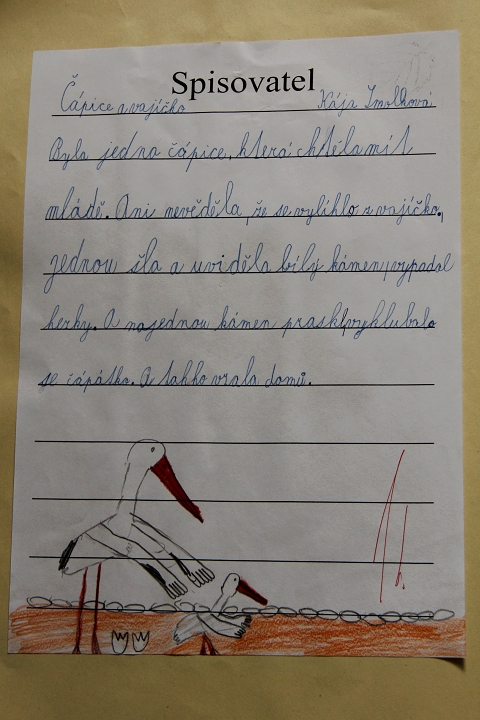 Spisovatel
Čápice a vajíčko Kája Smolková
Byla jedna čápice, která chtěla mít
mládě. Ani nevěděla, že se vylíhlo z vajíčka,
jednou šla a uviděla bílý kámen, vypadal
hezky. A najednou kámen praskl, vyhlubalo
se čápátko. A tahho vzala domů.